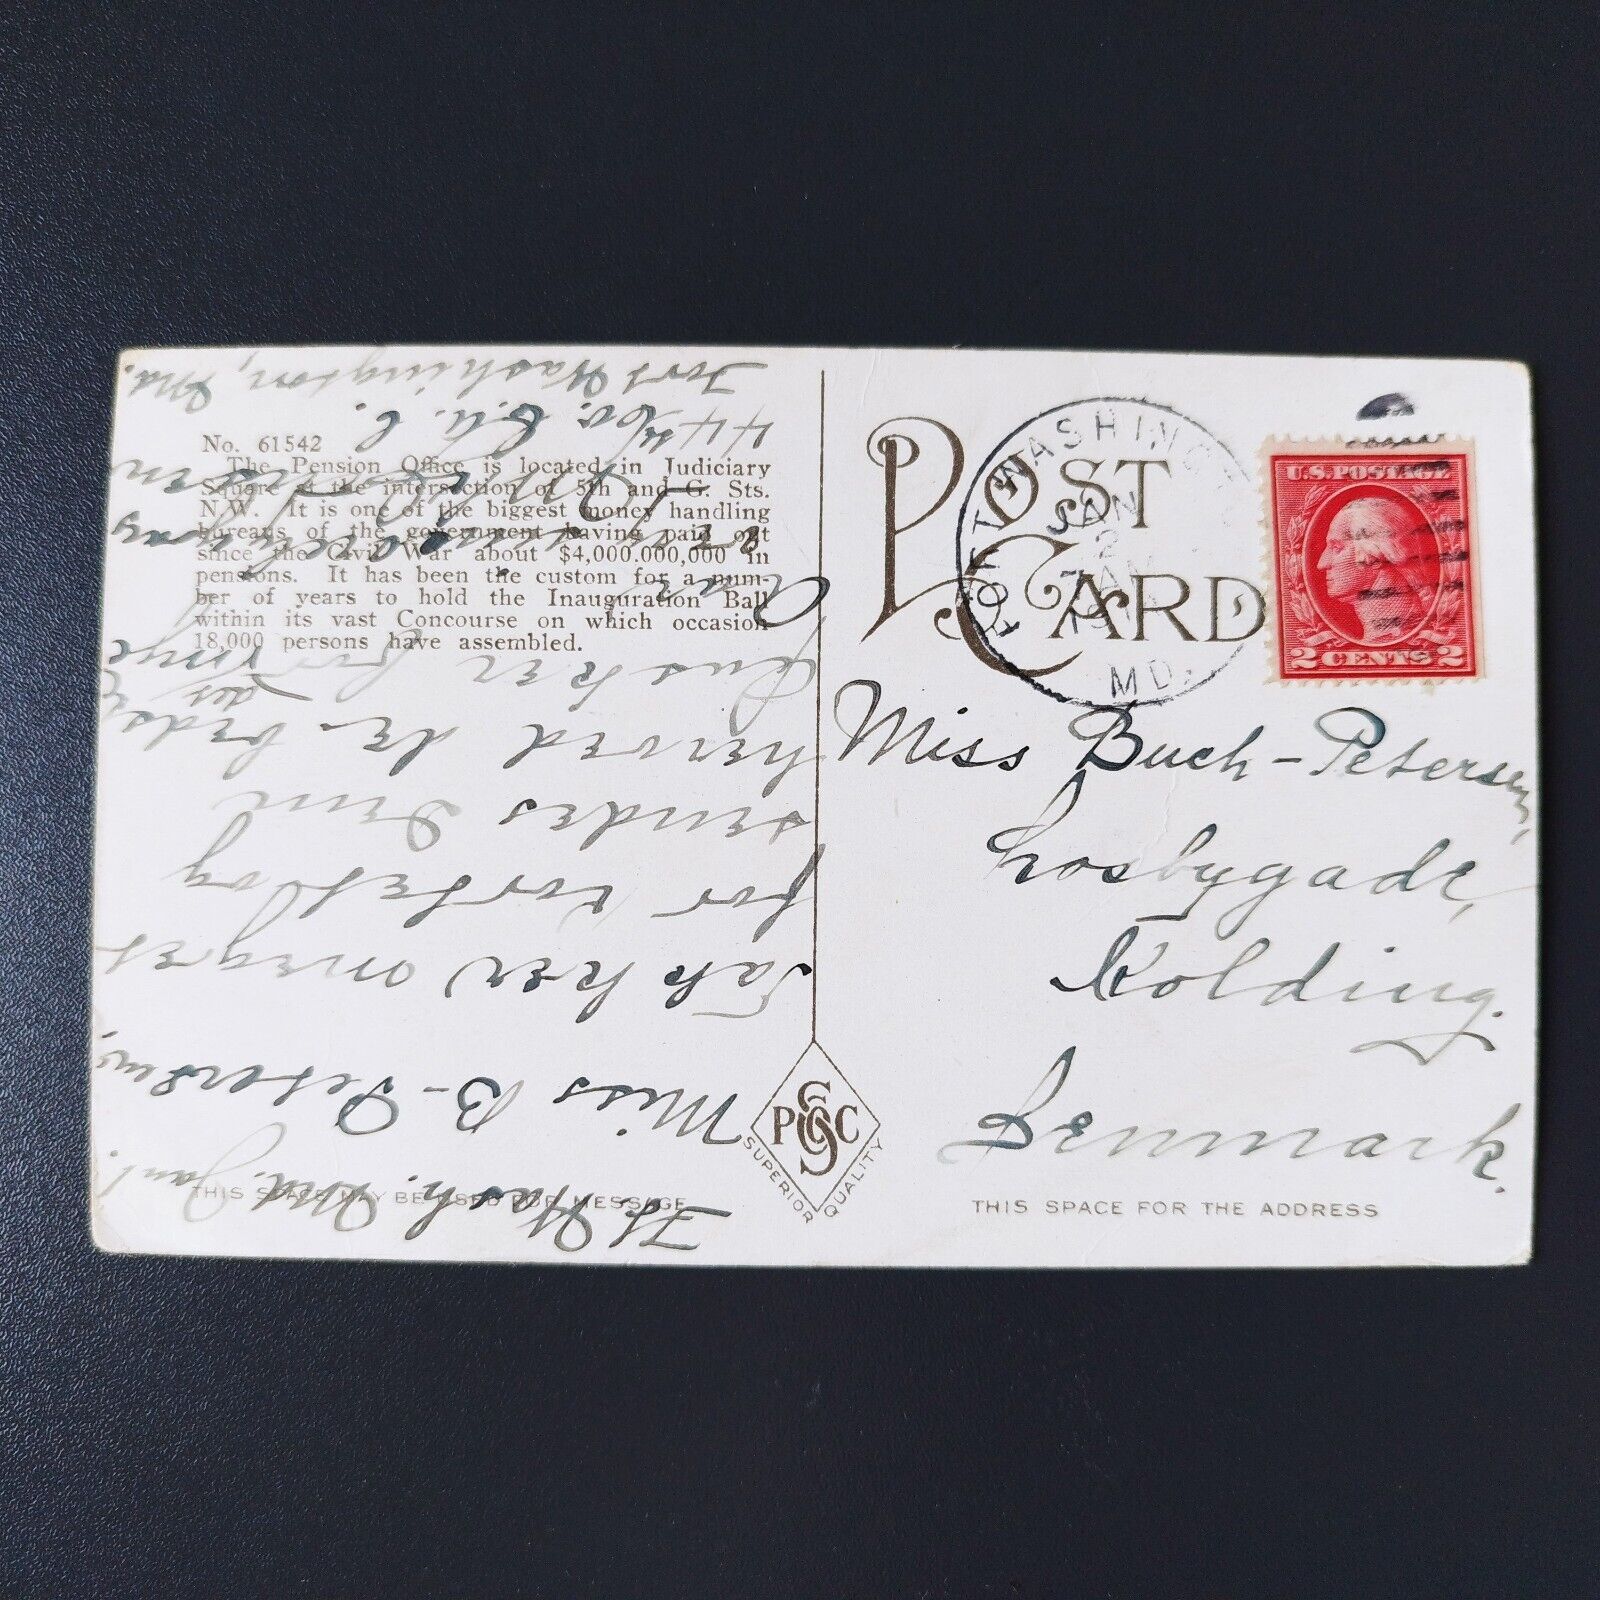 No. 61542
The Pension Office is located in Judiciary
Square at the intersection of 5th and G. Sts.
N.W. It is one of the biggest money handling
bureaus of the government having paid out
since the Civil War about $4,000,000,000 in
pensions. It has been the custom for a num-
ber of years to hold the Inauguration Ball
within its vast Concourse on which occasion
18,000 persons have assembled.
THIS SPACE MAY BE USED FOR MESSAGE
Ft. Wash. Md. Jan 1.
Miss B-Petersen,
Takker meget
for Kortet og
sendes Dem
herved de bedste
Ønsker for
Fort Washington, Md.
POST CARD
FORT WASHING
JAN
2
7 AM
MD.
U.S. POSTAGE
2 CENTS 2
Miss Buch-Petersen,
Losbygade,
Kolding.
Denmark.
PSOC
SUPERIOR QUALITY
THIS SPACE FOR THE ADDRESS